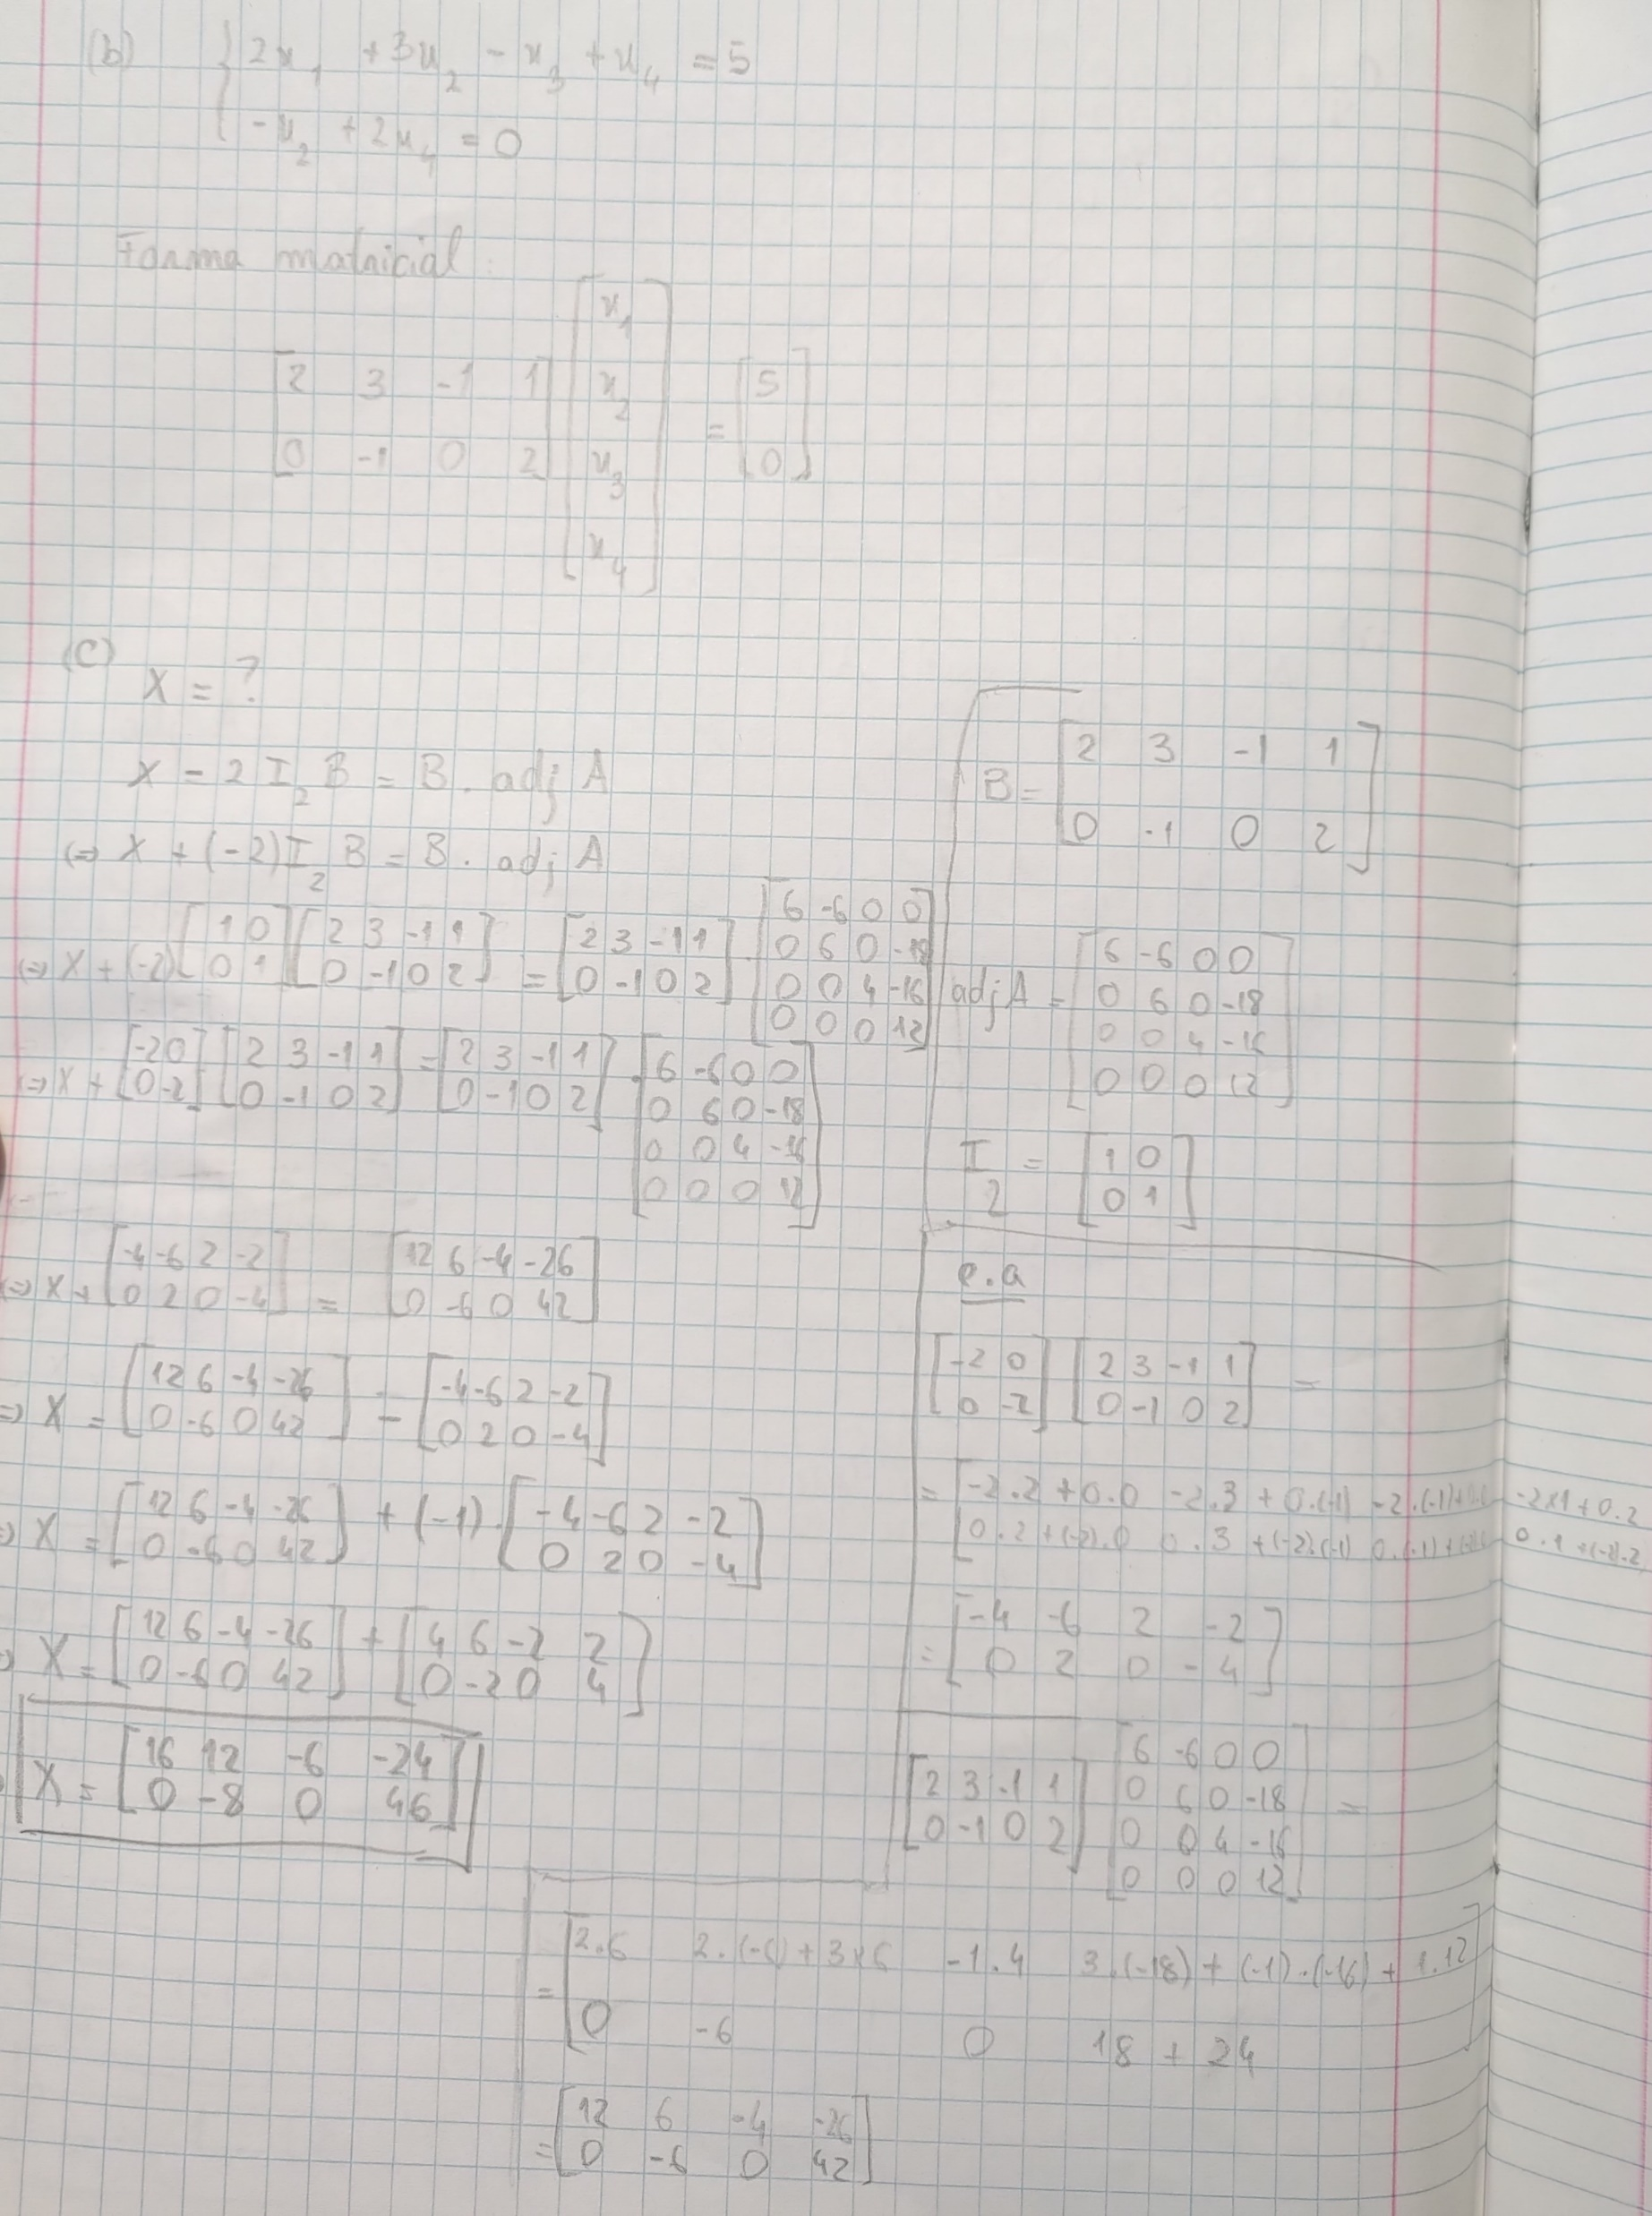 (b) { 2x₁ + 3x₂ - x₃ + x₄ = 5
-x₂ + 2x₄ = 0
Forma matricial:
[2 3 -1 1; 0 -1 0 2] [x₁; x₂; x₃; x₄] = [5; 0]
(c)
X = ?
X - 2 I₂ B = B . adj A
(⇒ X + (-2) I₂ B = B . adj A
(⇒ X + (-2) [1 0; 0 1] [2 3 -1 1; 0 -1 0 2] = [2 3 -1 1; 0 -1 0 2] . [6 -6 0 0; 0 6 0 -18; 0 0 4 -16; 0 0 0 12]
(⇒ X + [-2 0; 0 -2] [2 3 -1 1; 0 -1 0 2] = [2 3 -1 1; 0 -1 0 2] . [6 -6 0 0; 0 6 0 -18; 0 0 4 -16; 0 0 0 12]
(⇒ X + [-4 -6 2 -2; 0 2 0 -4] = [12 6 -4 -26; 0 -6 0 42]
⇒ X = [12 6 -4 -26; 0 -6 0 42] - [-4 -6 2 -2; 0 2 0 -4]
⇒ X = [12 6 -4 -26; 0 -6 0 42] + (-1) . [-4 -6 2 -2; 0 2 0 -4]
⇒ X = [12 6 -4 -26; 0 -6 0 42] + [4 6 -2 2; 0 -2 0 4]
X = [16 12 -6 -24; 0 -8 0 46]
B = [2 3 -1 1; 0 -1 0 2]
adj A = [6 -6 0 0; 0 6 0 -18; 0 0 4 -16; 0 0 0 12]
I₂ = [1 0; 0 1]
c.a
[-2 0; 0 -2] [2 3 -1 1; 0 -1 0 2] =
= [-2.2 + 0.0 -2.3 + 0.(-1) -2.(-1) + -2×1 + 0.2
0.2 + (-2).0 0.3 + (-2).(-1) 0.(-1) + 0.1 + (-2).2
= [-4 -6 2 -2; 0 2 0 -4]
[2 3 -1 1; 0 -1 0 2] [6 -6 0 0; 0 6 0 -18; 0 0 4 -16; 0 0 0 12] =
= [2.6 2.(-6) + 3×6 -1.4 3.(-18) + (-1).(-16) + 1.12
0 -6 0 18 + 24]
= [12 6 -4 -26; 0 -6 0 42]